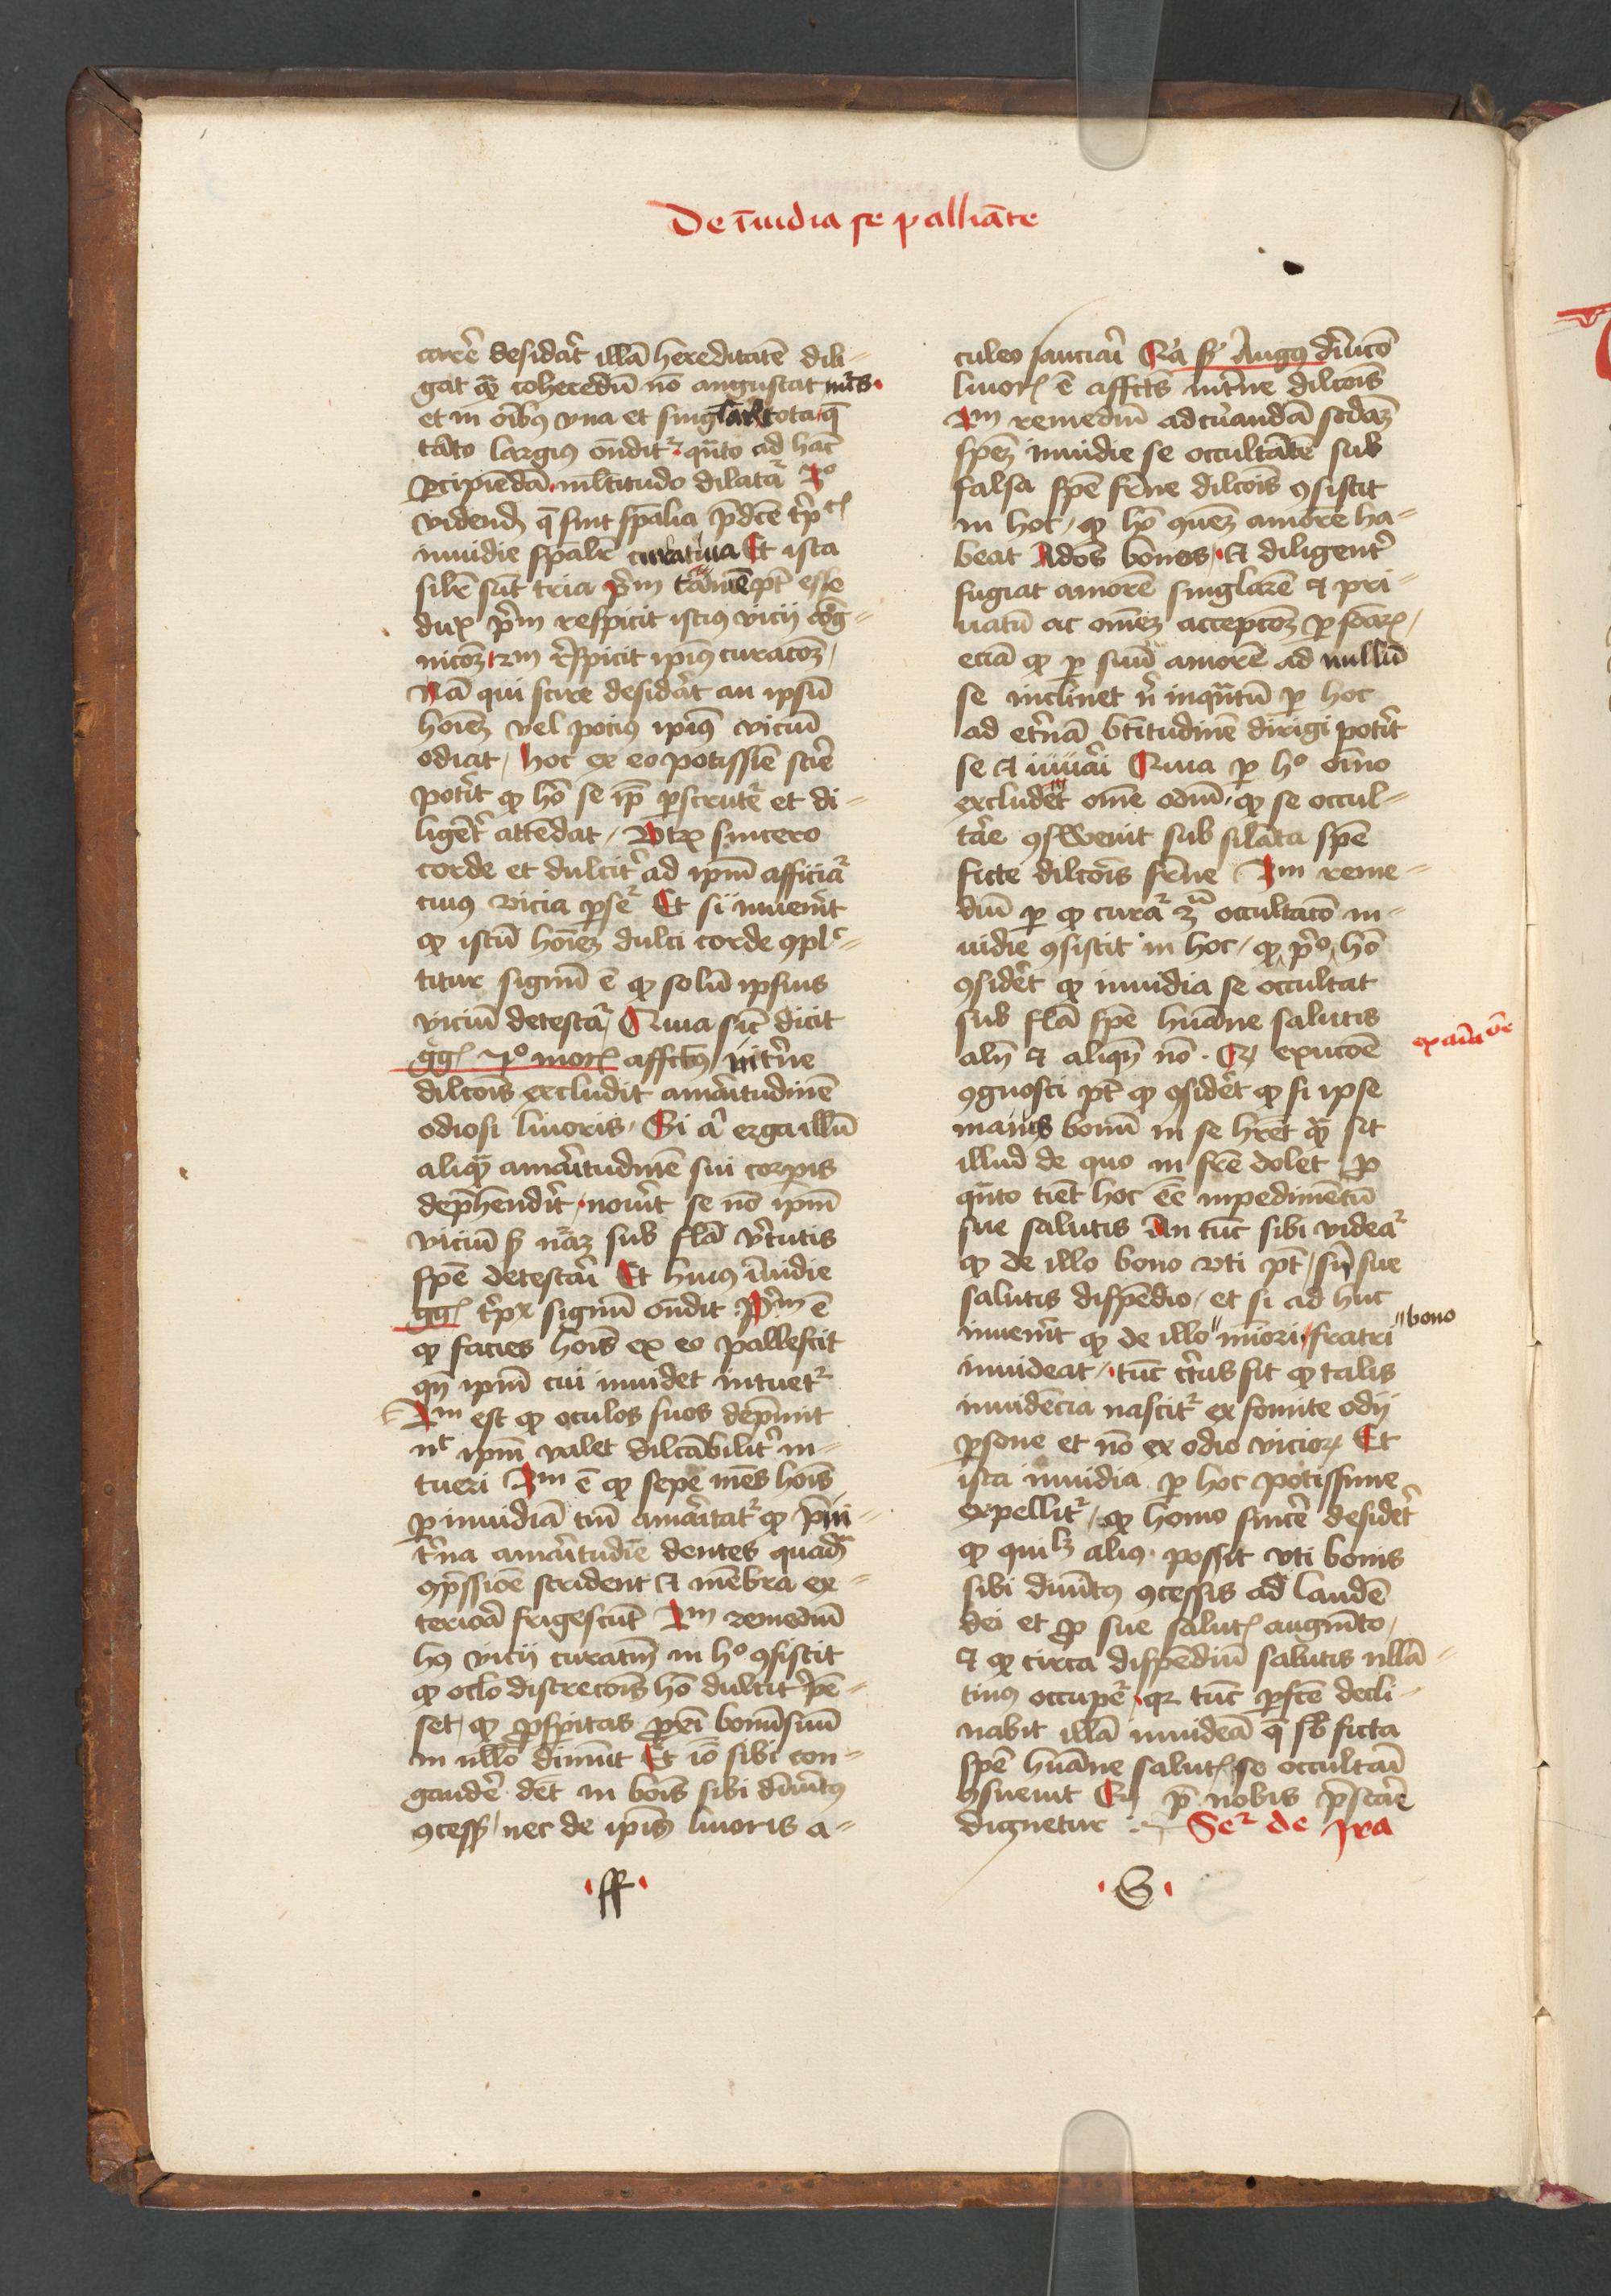 De īuidia se palliāte
carē desidat illā hereditatē dili=
gat quā coheredū nō angustat
et in oībus vna et tota
tāto largius ōnditr quāto ad hāc
pcipiēdā mltitudo dilatar 2o
vidend q̄ sint spālia p̄dce
inuidie spālr curatiua Et ista
silr sūt tria pm tamē pt esse
dux pm respicit istius vicij cog=
nicōz 2m respicit ipius curacōz
Nā qui scire desidat an ipsū
hoiez vel potius ipius viciū
odiat hoc ex eo potissīe scire
potit ꝙ hō se ip̄ pscruter et di=
ligēt attēdat Vtrx sincero
corde et dulcit ad ipm afficiar
cuius vicia pser Et si inuenit
ꝙ istū hoiez dulci corde
titur signū ē ꝙ solū ipsius
viciū detestar Quia sic dicit
gg 7o mor affctus intne
dilcōis excludit amaritudinē
odiosi liuoris Si a ergaillū
aliquā amaritudinē sui corpis
dep̄hendit nouit se nō ipm
viciū s nāz sub flā vtutis
spē detestari Et huius inuidie
gg signū ōndit Pm ē
ꝙ facies hois ex eo pallescit
qn ipm cui inuidet intuetr
2m est ꝙ oculos suos dep̄mit
nc ipm valet dilcābilit in=
tueri 3m ē ꝙ sepe mēs hois
p inuidiā tm amaritatr ꝙ
tna amaritudīe dentes quadā
ꝯpssiōe strident et mēbra ex=
teriora frigescūt 3m remediū
hus vicij curatm in ho ꝯsistit
ꝙ oclo discrecōis hō dulcit pē=
set ꝙ pspitas prxi bonūsuū
in nllo dimiūt Et iō sibi con=
gaudē det in bois sibi diuitus
ꝯcess nec de ipis liuoris a=
ff
culeo sauciai Qa Augus
liuor ē affctus intne dilcōis
2m remediū adcurandā scdaz
spez inuidie se occultātē sub
falsa spē frne dilcōis ꝯsistit
in hoc ꝙ hō quez amorē ha=
beat Ad oēs bonos et diligent
fugiat amorē singlarē et pri=
uatū ac oēmz accepcōz psoar
eciā ꝙ p suū amorē ad nullū
se inclinet n inquātū p hoc
ad etnā btitudinē dirigi potit
se et iuuai Quia p ho oīno
excludet om̄e odiū ꝙ se occul=
tare ꝯsweuit sub silāta spē
ficte dilcōis frne 3m reme=
diū p ꝙ curar 3a occultacō in=
uidie ꝯsistit in hoc ꝙ po hō
ꝯsidet ꝙ inuidia se occultat
sub flā spē hūane salutis
alin et aliqn nō
ꝯgnosci pt ꝙ ꝯsidet ꝙ si ipse
maius bonū in se hret quā sit
illud de quo in fre dolet p
quāto tiēt hoc eē inpedimētū
sue salutis An tūc sibi videar
ꝙ de illo bono vti pt sn sue
salutis dispēdio et si ad huc
inuenit ꝙ de illo miori fratri
bono
inuideat tūc ctus sit ꝙ talis
inuidēcia nascitr ex fomite odij
psone et nō ex odio vicior Et
ista inuidia p hoc potissime
expellitr ꝙ homo sincē desidet
ꝙ quibz alius possit vti bonis
sibi diuitus ꝯcessis ad laudē
dei et p sue salut augmto
et ꝙ circa dispēdiū salutis nllā=
tinus occuper qr tūc pfcē decli=
nabit illā inuideā q̄ sb ficta
spē hūane salut se occultai
ꝯsueuit p̄ nobis p̄stare
dignetur Ser de Ira
G